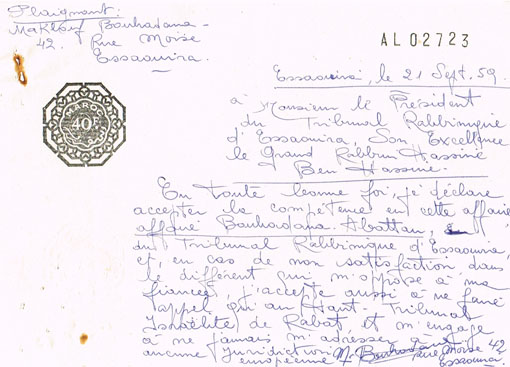 Plaignant:
Makhlouf Bouhadana -
42. Rue Moïse
Essaouira.
AL 02723
MAROC
40F
Essaouira, le 21 Sept. 59
à Monsieur le Président
du Tribunal Rabbinique
d'Essaouira, Son Excellence
le Grand Rabbin Hassine
Ben Hassine.
En toute bonne foi, je déclare
accepter la compétence en cette affaire
affaire Bouhadana-Abattan,
du Tribunal Rabbinique d'Essaouira,
et, en cas de non satisfaction dans
le différent qui m'oppose à ma
fiancée, j'accepte aussi à ne faire
appel qu'au Haut-Tribunal
Israélite de Rabat, et m'engage
à ne jamais m'adresser
aucune juridiction
européenne
M. Bouhadana
rue Moïse 42
Essaouira